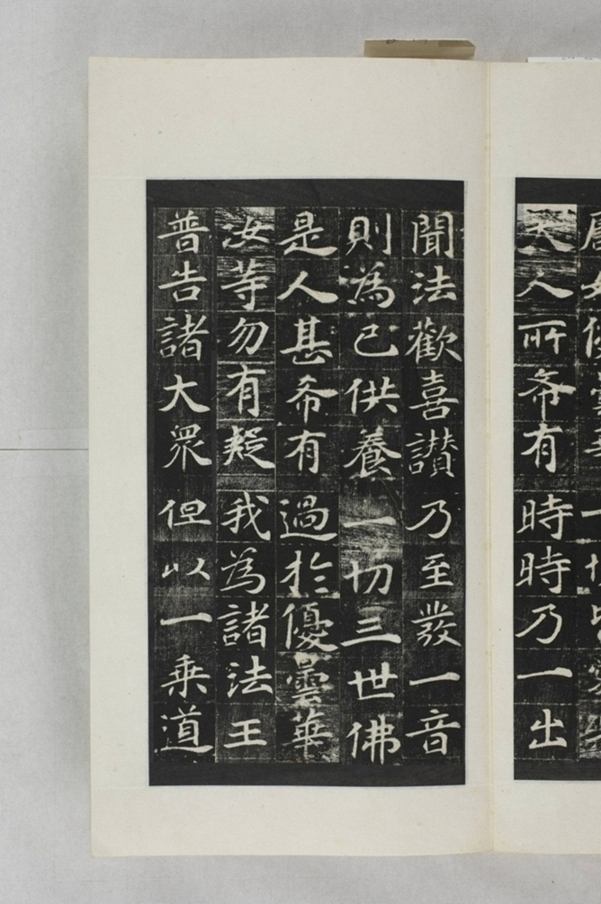 天人所希有時時乃一出
聞法歡喜讃乃至發一音
則為已供養一切三世佛
是人甚希有過於優曇華
汝等勿有疑我為諸法王
普告諸大衆但以一乗道